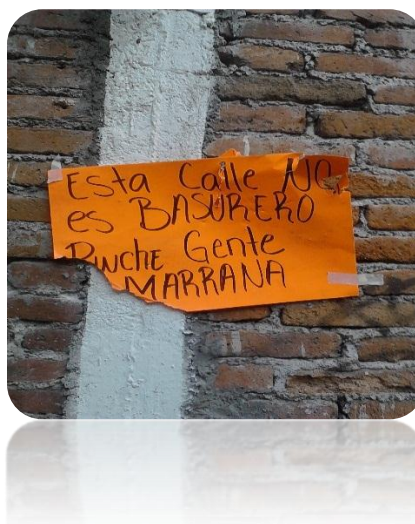 Esta Calle NO
es BASURERO
PINCHE Gente
MARRANA